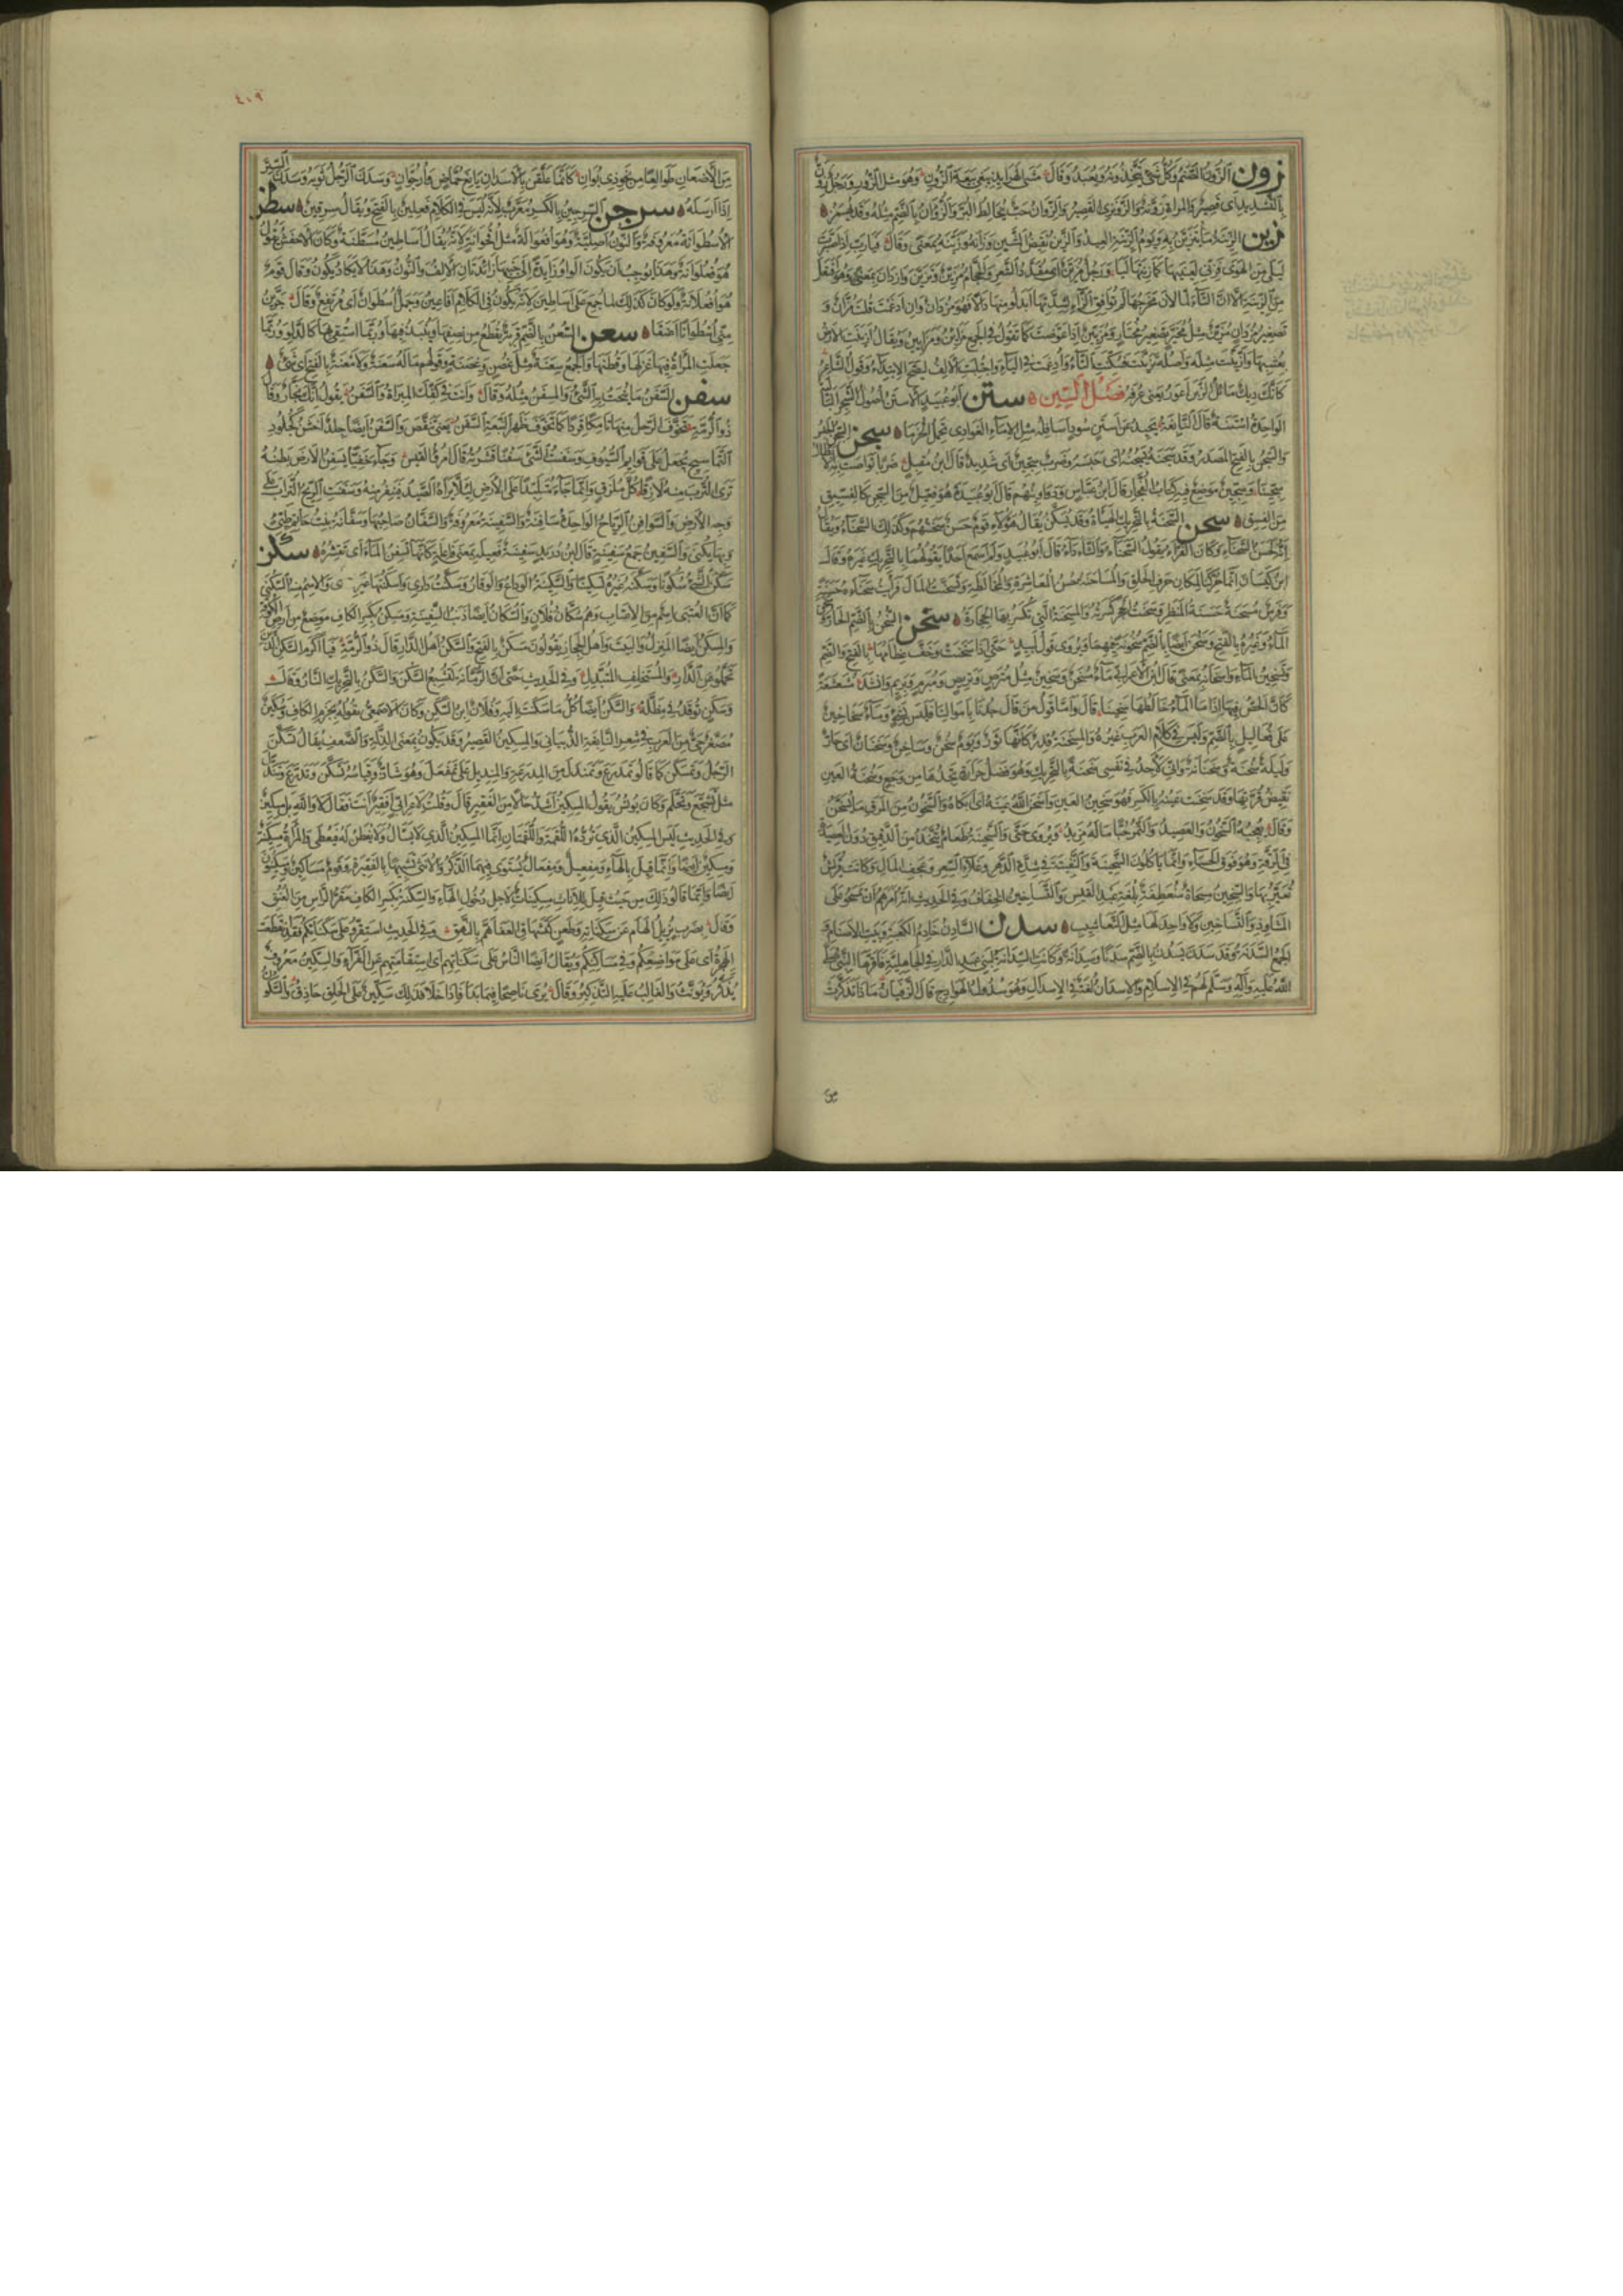 زون الزُّونُ الصَّنَمُ وَكُلُّ شَيْءٍ يُتَّخَذُ وَيُعْبَدُ وَقَالَ مَشْيَ الْهَرَابِذِ بَيْعَةَ الزُّونِ وَهُوَ مِثْلُ الزُّورِ وَرَجُلٌ زِوَنٌّ
بِالتَّشْدِيدِ أَيْ قَصِيرٌ وَالْمَرْأَةُ زِوَنَّةٌ وَالزَّوَنْزَى الْقَصِيرُ وَالزُّوَانُ حَبٌّ يُخَالِطُ الْبُرَّ وَالزُّوَانُ بِالضَّمِّ مِثْلُهُ وَقَدْ يُهْمَزُ
زين الزِّينَةُ مَا يُتَزَيَّنُ بِهِ وَيَوْمُ الزِّينَةِ الْعِيدُ وَالزَّيْنُ نَقِيضُ الشَّيْنِ وَزَانَهُ وَزَيَّنَهُ بِمَعْنًى وَقَالَ فَيَارَبِّ اِذْ صَيَّرْتَ
لَيْلَى مِنَ الْهَوَى فَزِنِّي لِعَيْنَيْهَا كَمَا زِنْتَهَا لِيَا وَرَجُلٌ مُزَيَّنٌ أَيْ مُقَذَّذُ الشَّعَرِ وَالْحَجَّامُ مُزَيِّنٌ وَتَزَيَّنَ وَازْدَانَ بِمَعْنًى وَهُوَ افْتَعَلَ
مِنَ الزِّينَةِ إِلَّا أَنَّ التَّاءَ لَمَّا لَانَ مَخْرَجُهَا وَلَمْ تُوَافِقِ الزَّاءَ لِشِدَّتِهَا أَبْدَلُوا مِنْهَا دَالًا فَهُوَ مُزْدَانٌ وَإِنْ أَدْغَمْتَ قُلْتَ مُزَّانٌ وَ
تَصْغِيرُ مُزْدَانٍ مُزَيِّنٌ مِثْلُ مُخَيِّرٍ تَصْغِيرُ مُخْتَارٍ وَمُزَيِّينٌ إِذَا عَوَّضْتَ كَمَا تَقُولُ فِي الْجَمْعِ مَزَايِنُ وَمَزَايِينُ وَيُقَالُ أَزْيَنَتِ الْأَرْضُ
بِعُشْبِهَا وَازَّيَّنَتْ مِثْلُهُ وَأَصْلُهُ تَزَيَّنَتْ فَسُكِّنَتِ التَّاءُ وَأُدْغِمَتْ فِي الزَّاءِ وَاجْتُلِبَتِ الْأَلِفُ لِيَصِحَّ الِابْتِدَاءُ وَقَوْلُ الشَّاعِرِ
كَأَنَّكَ دِيكٌ مَائِلُ الزَّيْنِ أَعْوَرُ يَعْنِي عُرْفَهُ فَصْلُ السِّينِ ستن أَبُو عُبَيْدٍ الْأَسْتَنُ أُصُولُ الشَّجَرِ الْبَالِي
الْوَاحِدَةُ أَسْتَنَةٌ قَالَ النَّابِغَةُ تَحِيدُ عَنْ أَسْتَنٍ سُودٍ أَسَافِلُهُ مِثْلِ الْإِمَاءِ الْغَوَادِي تَحْمِلُ الْحُزَمَا سجن السِّجْنُ
وَالسَّجْنُ بِالْفَتْحِ الْمَصْدَرُ وَقَدْ سَجَنَهُ يَسْجُنُهُ أَيْ حَبَسَهُ وَضَرْبٌ سِجِّينٌ أَيْ شَدِيدٌ قَالَ ابْنُ مُقْبِلٍ ضَرْبًا تَوَاصَتْ بِهِ الْأَبْطَالُ
سِجِّينَا وَسِجِّينٌ مَوْضِعٌ فِيهِ كِتَابُ الْفُجَّارِ قَالَ ابْنُ عَبَّاسٍ وَدَوَاوِينُهُمْ قَالَ أَبُو عُبَيْدَةَ هُوَ فِعِّيلٌ مِنَ السِّجْنِ كَالْفِسِّيقِ
مِنَ الْفِسْقِ سحن السَّحَنَةُ بِالتَّحْرِيكِ الْهَيْأَةُ وَقَدْ يُسَكَّنُ يُقَالُ هَؤُلَاءِ قَوْمٌ حَسَنٌ سَحْنَتُهُمْ وَكَذَلِكَ السَّحْنَاءُ وَيُقَالُ
إِنَّهُ لَحَسَنُ السَّحْنَاءِ وَكَانَ الْفَرَّاءُ يَقُولُ السَّحَنَاءُ وَالثَّأَدَاءُ قَالَ أَبُو عُبَيْدٍ وَلَمْ أَسْمَعْ أَحَدًا يَقُولُهُمَا بِالتَّحْرِيكِ غَيْرَهُ وَقَالَ
ابْنُ كَيْسَانَ إِنَّمَا حُرِّكَتَا لِمَكَانِ حَرْفِ الْحَلْقِ وَالْمُسَاحَنَةُ حُسْنُ الْمُعَاشَرَةِ وَالْمُخَالَطَةِ وَتَسَحَّنْتُ الْمَالَ فَرَأَيْتُ سَحْنَاءَهُ حَسَنَةً
وَفَرَسٌ مُسْحَنَةٌ حَسَنَةُ الْمَنْظَرِ وَسَحَنْتُ الْحَجَرَ كَسَرْتُهُ وَالْمِسْحَنَةُ الَّتِي تُكْسَرُ بِهَا الْحِجَارَةُ سخن السُّخْنُ بِالضَّمِّ الْحَارُّ
الْمَاءُ وَغَيْرُهُ بِالْفَتْحِ وَسَخُنَ أَيْضًا بِالضَّمِّ سُخُونَةً فِيهِمَا وَيُرْوَى قَوْلُ لَبِيدٍ حَتَّى إِذَا سَخُنَتْ وَخَفَّ عِظَامُهَا بِالْفَتْحِ وَالضَّمِّ
وَتَسْخِينُ الْمَاءِ وَإِسْخَانُهُ بِمَعْنًى قَالَ ابْنُ الْأَعْرَابِيِّ مَاءٌ مُسْخَنٌ وَسَخِينٌ مِثْلُ مُتْرَصٍ وَتَرِيصٍ وَمُبْرَمٍ وَبَرِيمٍ وَأَنْشَدَ مُشَعْشَعَةً
كَأَنَّ الْحُصَّ فِيهَا إِذَا مَا الْمَاءُ خَالَطَهَا سَخِينَا قَالَ وَأَمَّا قَوْلُ مَنْ قَالَ جُدْنَا بِأَمْوَالِنَا فَلَيْسَ بِشَيْءٍ وَمَاءٌ سُخَاخِينٌ
عَلَى فُعَالِيلَ بِالضَّمِّ وَلَيْسَ فِي كَلَامِ الْعَرَبِ غَيْرُهُ وَالْمِسْخَنَةُ قِدْرٌ كَأَنَّهَا تَوْرٌ وَيَوْمٌ سُخْنٌ وَسَاخِنٌ وَسَخْنَانٌ أَيْ حَارٌّ
وَلَيْلَةٌ سُخْنَةٌ وَسَخْنَانَةٌ وَإِنِّي لَأَجِدُ فِي نَفْسِي سَخَنَةً بِالتَّحْرِيكِ وَهُوَ فَضْلُ حَرَارَةٍ تَجِدُهَا مِنْ وَجَعٍ وَسُخْنَةُ الْعَيْنِ
نَقِيضُ قُرَّتِهَا وَقَدْ سَخِنَتْ عَيْنُهُ بِالْكَسْرِ فَهُوَ سَخِينُ الْعَيْنِ وَأَسْخَنَ اللَّهُ عَيْنَهُ أَيْ أَبْكَاهُ وَالسَّخُونُ مِنَ الْمَرَقِ مَا يُسَخَّنُ
وَقَالَ يُعْجِبُهُ السَّخُونُ وَالْعَصِيدُ وَالتَّمْرُ حُبًّا مَا لَهُ مَزِيدُ وَيُرْوَى حَتَّى وَالسَّخِينَةُ طَعَامٌ يُتَّخَذُ مِنَ الدَّقِيقِ دُونَ الْعَصِيدَةِ
فِي الرِّقَّةِ وَهُوَ فَوْقَ الْحَسَاءِ وَإِنَّمَا يَأْكُلُونَ السَّخِينَةَ وَالنَّفِيتَةَ فِي شِدَّةِ الدَّهْرِ وَغَلَاءِ السِّعْرِ وَعَجَفِ الْمَالِ وَكَانَتْ قُرَيْشٌ
تُعَيَّرُ بِهَا وَالسِّخِّينُ مِسْحَاةٌ مُنْعَطِفَةٌ بِلُغَةِ عَبْدِ الْقَيْسِ وَالتَّسَاخِينُ الْخِفَافُ وَفِي الْحَدِيثِ أَنَّهُ أَمَرَهُمْ أَنْ يَمْسَحُوا عَلَى
الْمَشَاوِذِ وَالتَّسَاخِينِ وَلَا وَاحِدَ لَهَا مِثْلُ التَّعَاشِيبِ سدن السَّادِنُ خَادِمُ الْكَعْبَةِ وَبَيْتِ الْأَصْنَامِ وَ
الْجَمْعُ السَّدَنَةُ وَقَدْ سَدَنَ يَسْدُنُ بِالضَّمِّ سَدْنًا وَسِدَانَةً وَكَانَتِ السِّدَانَةُ لِبَنِي عَبْدِ الدَّارِ فِي الْجَاهِلِيَّةِ فَأَقَرَّهَا النَّبِيُّ صَلَّى
اللَّهُ عَلَيْهِ وَآلِهِ وَسَلَّمَ لَهُمْ فِي الْإِسْلَامِ وَالْأَسْدَانُ لُغَةٌ فِي الْأَسْدَالِ وَهُوَ سُدُولُ الْهَوَادِجِ قَالَ الزَّفَيَانُ مَاذَا تَذَكَّرْتَ
٤٠٩
مِنَ الْأَظْعَانِ طَوَالِعًا مِنْ نَحْوِ ذِي بُوَانِ كَأَنَّمَا عَلَّقْنَ بِالْأَسْدَانِ يَانِعَ حُمَّاضٍ وَأُرْجُوَانِ وَسَدَنَ الرَّجُلُ ثَوْبَهُ وَسَدَنَ السِّتْرَ
إِذَا أَرْسَلَهُ سرجن السِّرْجِينُ بِالْكَسْرِ مُعَرَّبٌ لِأَنَّهُ لَيْسَ فِي الْكَلَامِ فَعْلِيلٌ بِالْفَتْحِ وَيُقَالُ سِرْقِينٌ سطن
الْأُسْطُوَانَةُ مَعْرُوفَةٌ وَالنُّونُ أَصْلِيَّةٌ وَهُوَ أُفْعُوَالَةٌ مِثْلُ أُقْحُوَانَةٍ لِأَنَّهُ يُقَالُ أَسَاطِينُ مُسَطَّنَةٌ وَكَانَ الْأَخْفَشُ يَقُولُ
هُوَ فُعْلُوَانَةٌ وَهَذَا يُوجِبُ أَنْ يَكُونَ الْوَاوُ زَائِدَةً إِلَى جَنْبِهَا زَائِدَتَانِ الْأَلِفُ وَالنُّونُ وَهَذَا لَا يَكَادُ يَكُونُ وَقَالَ قَوْمٌ
هُوَ أُفْعُلَانَةٌ وَلَوْ كَانَ كَذَلِكَ لَمَا جُمِعَ عَلَى أَسَاطِينَ لِأَنَّهُ لَا يَكُونُ فِي الْكَلَامِ أَفَاعِينُ وَجَمَلٌ أُسْطُوَانٌ أَيْ مُرْتَفِعٌ وَقَالَ جَرَّبْنَ
مِنِّي أُسْطُوَانًا أَعْنَقَا سعن السُّعْنُ بِالضَّمِّ قِرْبَةٌ تُقْطَعُ مِنْ نِصْفِهَا وَيُنْبَذُ فِيهَا وَرُبَّمَا اسْتُقِيَ بِهَا كَالدَّلْوِ وَرُبَّمَا
جَعَلَتِ الْمَرْأَةُ فِيهَا غَزْلَهَا وَقُطْنَهَا وَالْجَمْعُ سِعَنَةٌ مِثْلُ غُصْنٍ وَغِصَنَةٍ وَقَوْلُهُمْ مَا لَهُ سَعْنَةٌ وَلَا مَعْنَةٌ بِالْفَتْحِ أَيْ شَيْءٌ
سفن السَّفَنُ مَا يُنْحَتُ بِهِ الشَّيْءُ وَالْمِسْفَنُ مِثْلُهُ وَقَالَ وَأَنْتَ فِي كَفِّكَ الْمِبْرَاةُ وَالسَّفَنُ يَقُولُ إِنَّكَ نَجَّارٌ وَقَالَ
ذُو الرُّمَّةِ تَخَوَّفَ الرَّحْلُ مِنْهَا تَامِكًا قَرِدًا كَمَا تَخَوَّفَ ظَهْرَ النَّبْعَةِ السَّفَنُ يَعْنِي تَنَقَّصَ وَالسَّفَنُ أَيْضًا جِلْدٌ أَخْشَنُ كَجُلُودِ
التَّمَاسِيحِ يُجْعَلُ عَلَى قَوَائِمِ السُّيُوفِ وَسَفَنْتُ الشَّيْءَ سَفْنًا قَشَرْتُهُ قَالَ امْرُؤُ الْقَيْسِ وَجَاءَ خَفِيًّا يَسْفِنُ الْأَرْضَ بَطْنُهُ
تَرَى التُّرْبَ مِنْهُ لَازِقًا كُلَّ مَلْزَقِ وَإِنَّمَا جَاءَ مُتَلَبِّدًا عَلَى الْأَرْضِ لِئَلَّا يَرَاهُ الصَّيْدُ فَيَنْفِرَ مِنْهُ وَسَفَنَتِ الرِّيحُ التُّرَابَ عَلَى
وَجْهِ الْأَرْضِ وَالسَّوَافِنُ الرِّيَاحُ الْوَاحِدَةُ سَافِنَةٌ وَالسَّفِينَةُ مَعْرُوفَةٌ وَالسَّفَّانُ صَاحِبُهَا وَسَفَّانَةُ بِنْتُ حَاتِمِ طَيِّئٍ
وَبِهَا يُكْنَى وَالسَّفِينُ جَمْعُ سَفِينَةٍ قَالَ ابْنُ دُرَيْدٍ سَفِينَةٌ فَعِيلَةٌ بِمَعْنَى فَاعِلَةٍ كَأَنَّهَا تَسْفِنُ الْمَاءَ أَيْ تَقْشِرُهُ سكن
سَكَنَ الشَّيْءُ سُكُونًا وَسَكَّنَهُ غَيْرُهُ تَسْكِينًا وَالسَّكِينَةُ الْوَدَاعُ وَالْوَقَارُ وَسَكَنْتُ دَارِي وَأَسْكَنْتُهَا غَيْرِي وَالِاسْمُ مِنْهُ السُّكْنَى
كَمَا أَنَّ الْعُتْبَى اسْمٌ مِنَ الْإِعْتَابِ وَهُمْ سُكَّانُ فُلَانٍ وَالسُّكَّانُ أَيْضًا ذَنَبُ السَّفِينَةِ وَمَسْكِنُ بِكَسْرِ الْكَافِ مَوْضِعٌ مِنْ أَرْضِ الْكُوفَةِ
وَالْمَسْكِنُ أَيْضًا الْمَنْزِلُ وَالْبَيْتُ وَأَهْلُ الْحِجَازِ يَقُولُونَ مَسْكَنٌ بِالْفَتْحِ وَالسَّكْنُ أَهْلُ الدَّارِ قَالَ ذُو الرُّمَّةِ فَيَا أَكْرَمَ السَّكْنِ الَّذِينَ
تَحَمَّلُوا عَنِ الدَّارِ وَالْمُسْتَخْلَفِ الْمُتَبَدِّلِ وَفِي الْحَدِيثِ حَتَّى أَنَّ الرُّمَّانَةَ لَتُشْبِعُ السَّكْنَ وَالسَّكَنُ بِالتَّحْرِيكِ النَّارُ وَقَالَ
وَسَكَنٍ تُوقَدُ فِي مِظَلَّهْ وَالسَّكَنُ أَيْضًا كُلُّ مَا سَكَنْتَ إِلَيْهِ وَفُلَانُ ابْنُ السَّكَنِ وَكَانَ الْأَصْمَعِيُّ يَقُولُهُ بِجَزْمِ الْكَافِ وَسُكَيْنٌ
مُصَغَّرٌ حَيٌّ مِنَ الْعَرَبِ فِي شِعْرِ النَّابِغَةِ الذُّبْيَانِيِّ وَالْمِسْكِينُ الْفَقِيرُ وَقَدْ يَكُونُ بِمَعْنَى الذِّلَّةِ وَالضَّعْفِ يُقَالُ تَسَكَّنَ
الرَّجُلُ وَتَمَسْكَنَ كَمَا قَالُوا تَمَدْرَعَ وَتَمَنْدَلَ مِنَ الْمِدْرَعَةِ وَالْمِنْدِيلِ عَلَى تَمَفْعَلَ وَهُوَ شَاذٌّ وَقِيَاسُهُ تَسَكَّنَ وَتَدَرَّعَ وَتَنَدَّلَ
مِثْلُ تَشَجَّعَ وَتَحَلَّمَ وَكَانَ يُونُسُ يَقُولُ الْمِسْكِينُ أَشَدُّ حَالًا مِنَ الْفَقِيرِ قَالَ وَقُلْتُ لِأَعْرَابِيٍّ أَفَقِيرٌ أَنْتَ فَقَالَ لَا وَاللَّهِ بَلْ مِسْكِينٌ
وَفِي الْحَدِيثِ لَيْسَ الْمِسْكِينُ الَّذِي تَرُدُّهُ اللُّقْمَةُ وَاللُّقْمَتَانِ إِنَّمَا الْمِسْكِينُ الَّذِي لَا يَسْأَلُ وَلَا يُفْطَنُ لَهُ فَيُعْطَى وَالْمَرْأَةُ مِسْكِينَةٌ
وَمِسْكِينٌ أَيْضًا وَإِنَّمَا قِيلَ بِالْهَاءِ وَمِفْعِيلٌ وَمِفْعَالٌ يَسْتَوِي فِيهِمَا الذَّكَرُ وَالْأُنْثَى تَشْبِيهًا بِالْفَقِيرَةِ وَقَوْمٌ مَسَاكِينُ وَمِسْكِينُونَ
أَيْضًا وَإِنَّمَا قَالُوا ذَلِكَ مِنْ حَيْثُ قِيلَ لِلْإِنَاثِ مِسْكِينَاتٌ لِأَجْلِ دُخُولِ الْهَاءِ وَالسَّكِنَةُ بِكَسْرِ الْكَافِ مَقَرُّ الرَّأْسِ مِنَ الْعُنُقِ
وَقَالَ بِضَرْبٍ يُزِيلُ الْهَامَ عَنْ سَكِنَاتِهِ وَطَعْنٍ كَتَشْهَاقِ الْعَفَا هَمَّ بِالنَّهْقِ وَفِي الْحَدِيثِ اسْتَقِرُّوا عَلَى سَكِنَاتِكُمْ فَقَدِ انْقَطَعَتِ
الْهِجْرَةُ أَيْ عَلَى مَوَاضِعِكُمْ وَفِي مَسَاكِنِكُمْ وَيُقَالُ أَيْضًا النَّاسُ عَلَى سَكِنَاتِهِمْ أَيْ اسْتِقَامَتِهِمْ عَنِ الْفَرَّاءِ وَالسِّكِّينُ مَعْرُوفٌ
يُذَكَّرُ وَيُؤَنَّثُ وَالْغَالِبُ عَلَيْهِ التَّذْكِيرُ وَقَالَ يُرَى نَاصِحًا فِيمَا بَدَا وَإِذَا خَلَا فَذَلِكَ سِكِّينٌ عَلَى الْحَلْقِ حَاذِقُ